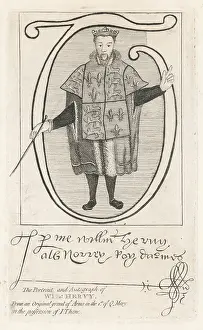 p me Willm Hervy
als Norrey Roy darmes
The Portrait and Autograph of
WM. HERVY,
From an Original grant of Arms in the 1st. of Q. Mary
in the possession of J. Thane.